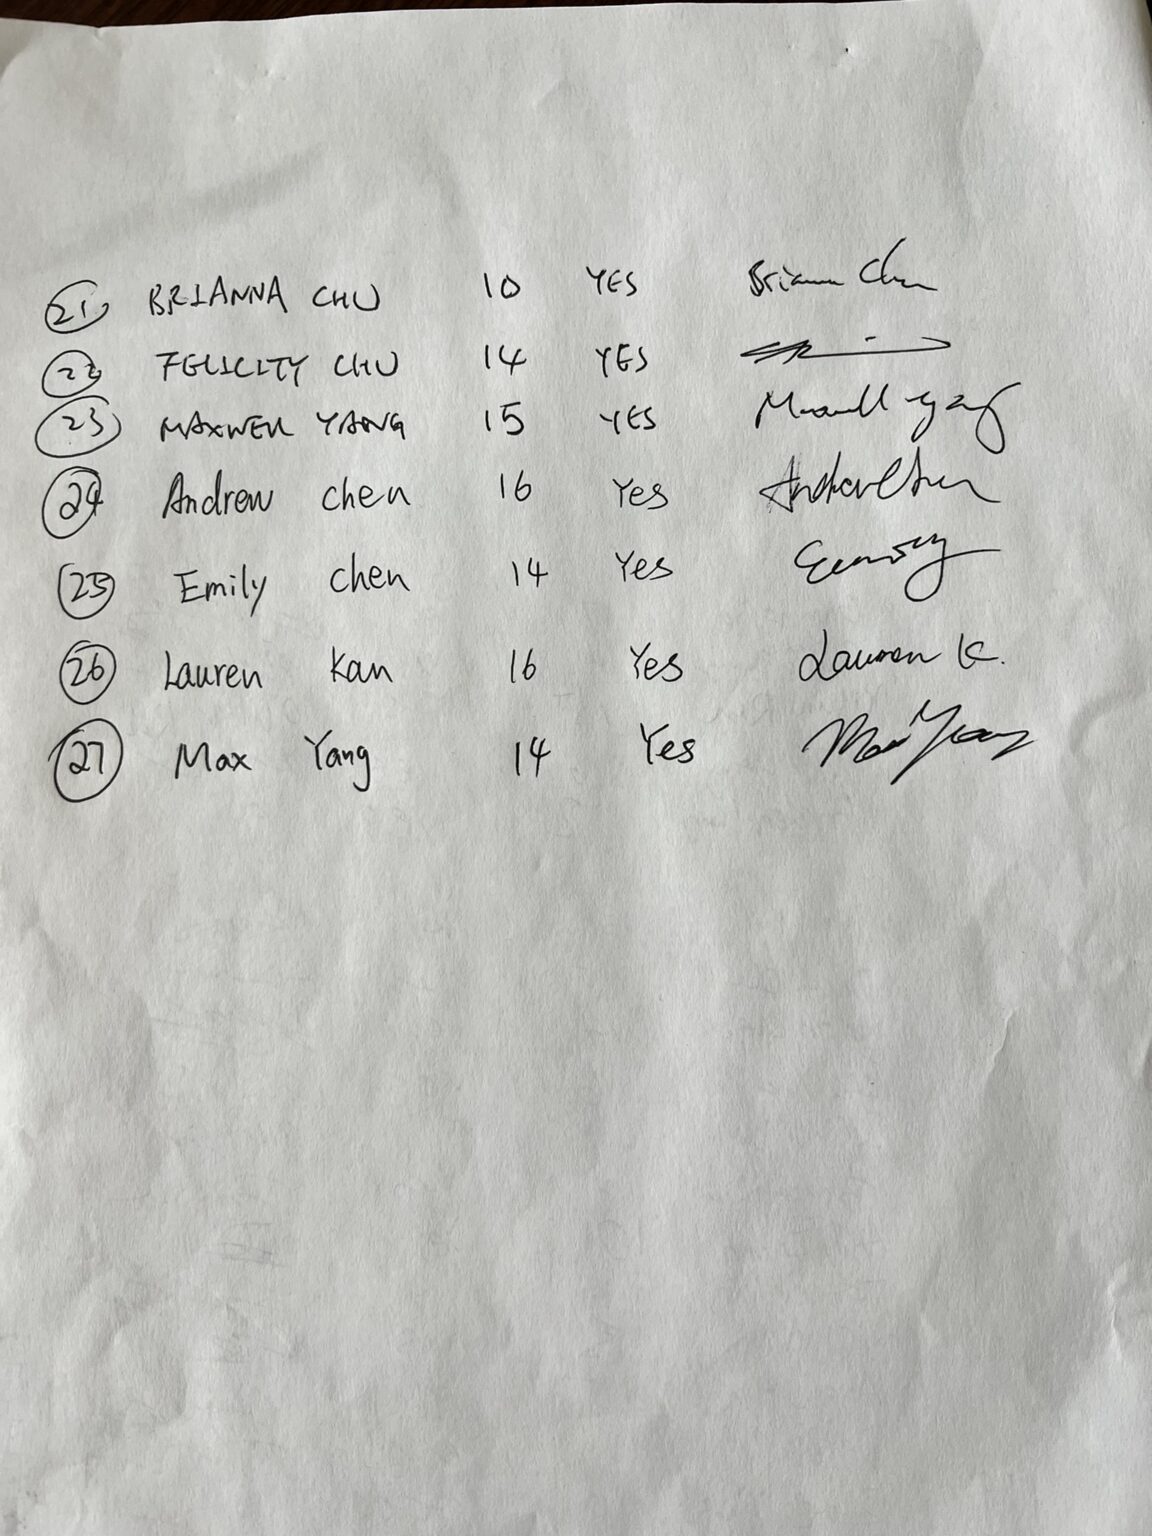 21 BRIANNA CHU 10 YES Brianna Chu
22 FELICITY CHU 14 YES
23 MAXWELL YANG 15 YES Maxwell Yang
24 Andrew Chen 16 Yes Andrew Chen
25 Emily Chen 14 Yes
26 Lauren Kan 16 Yes Lauren K.
27 Max Yang 14 Yes Max Yang